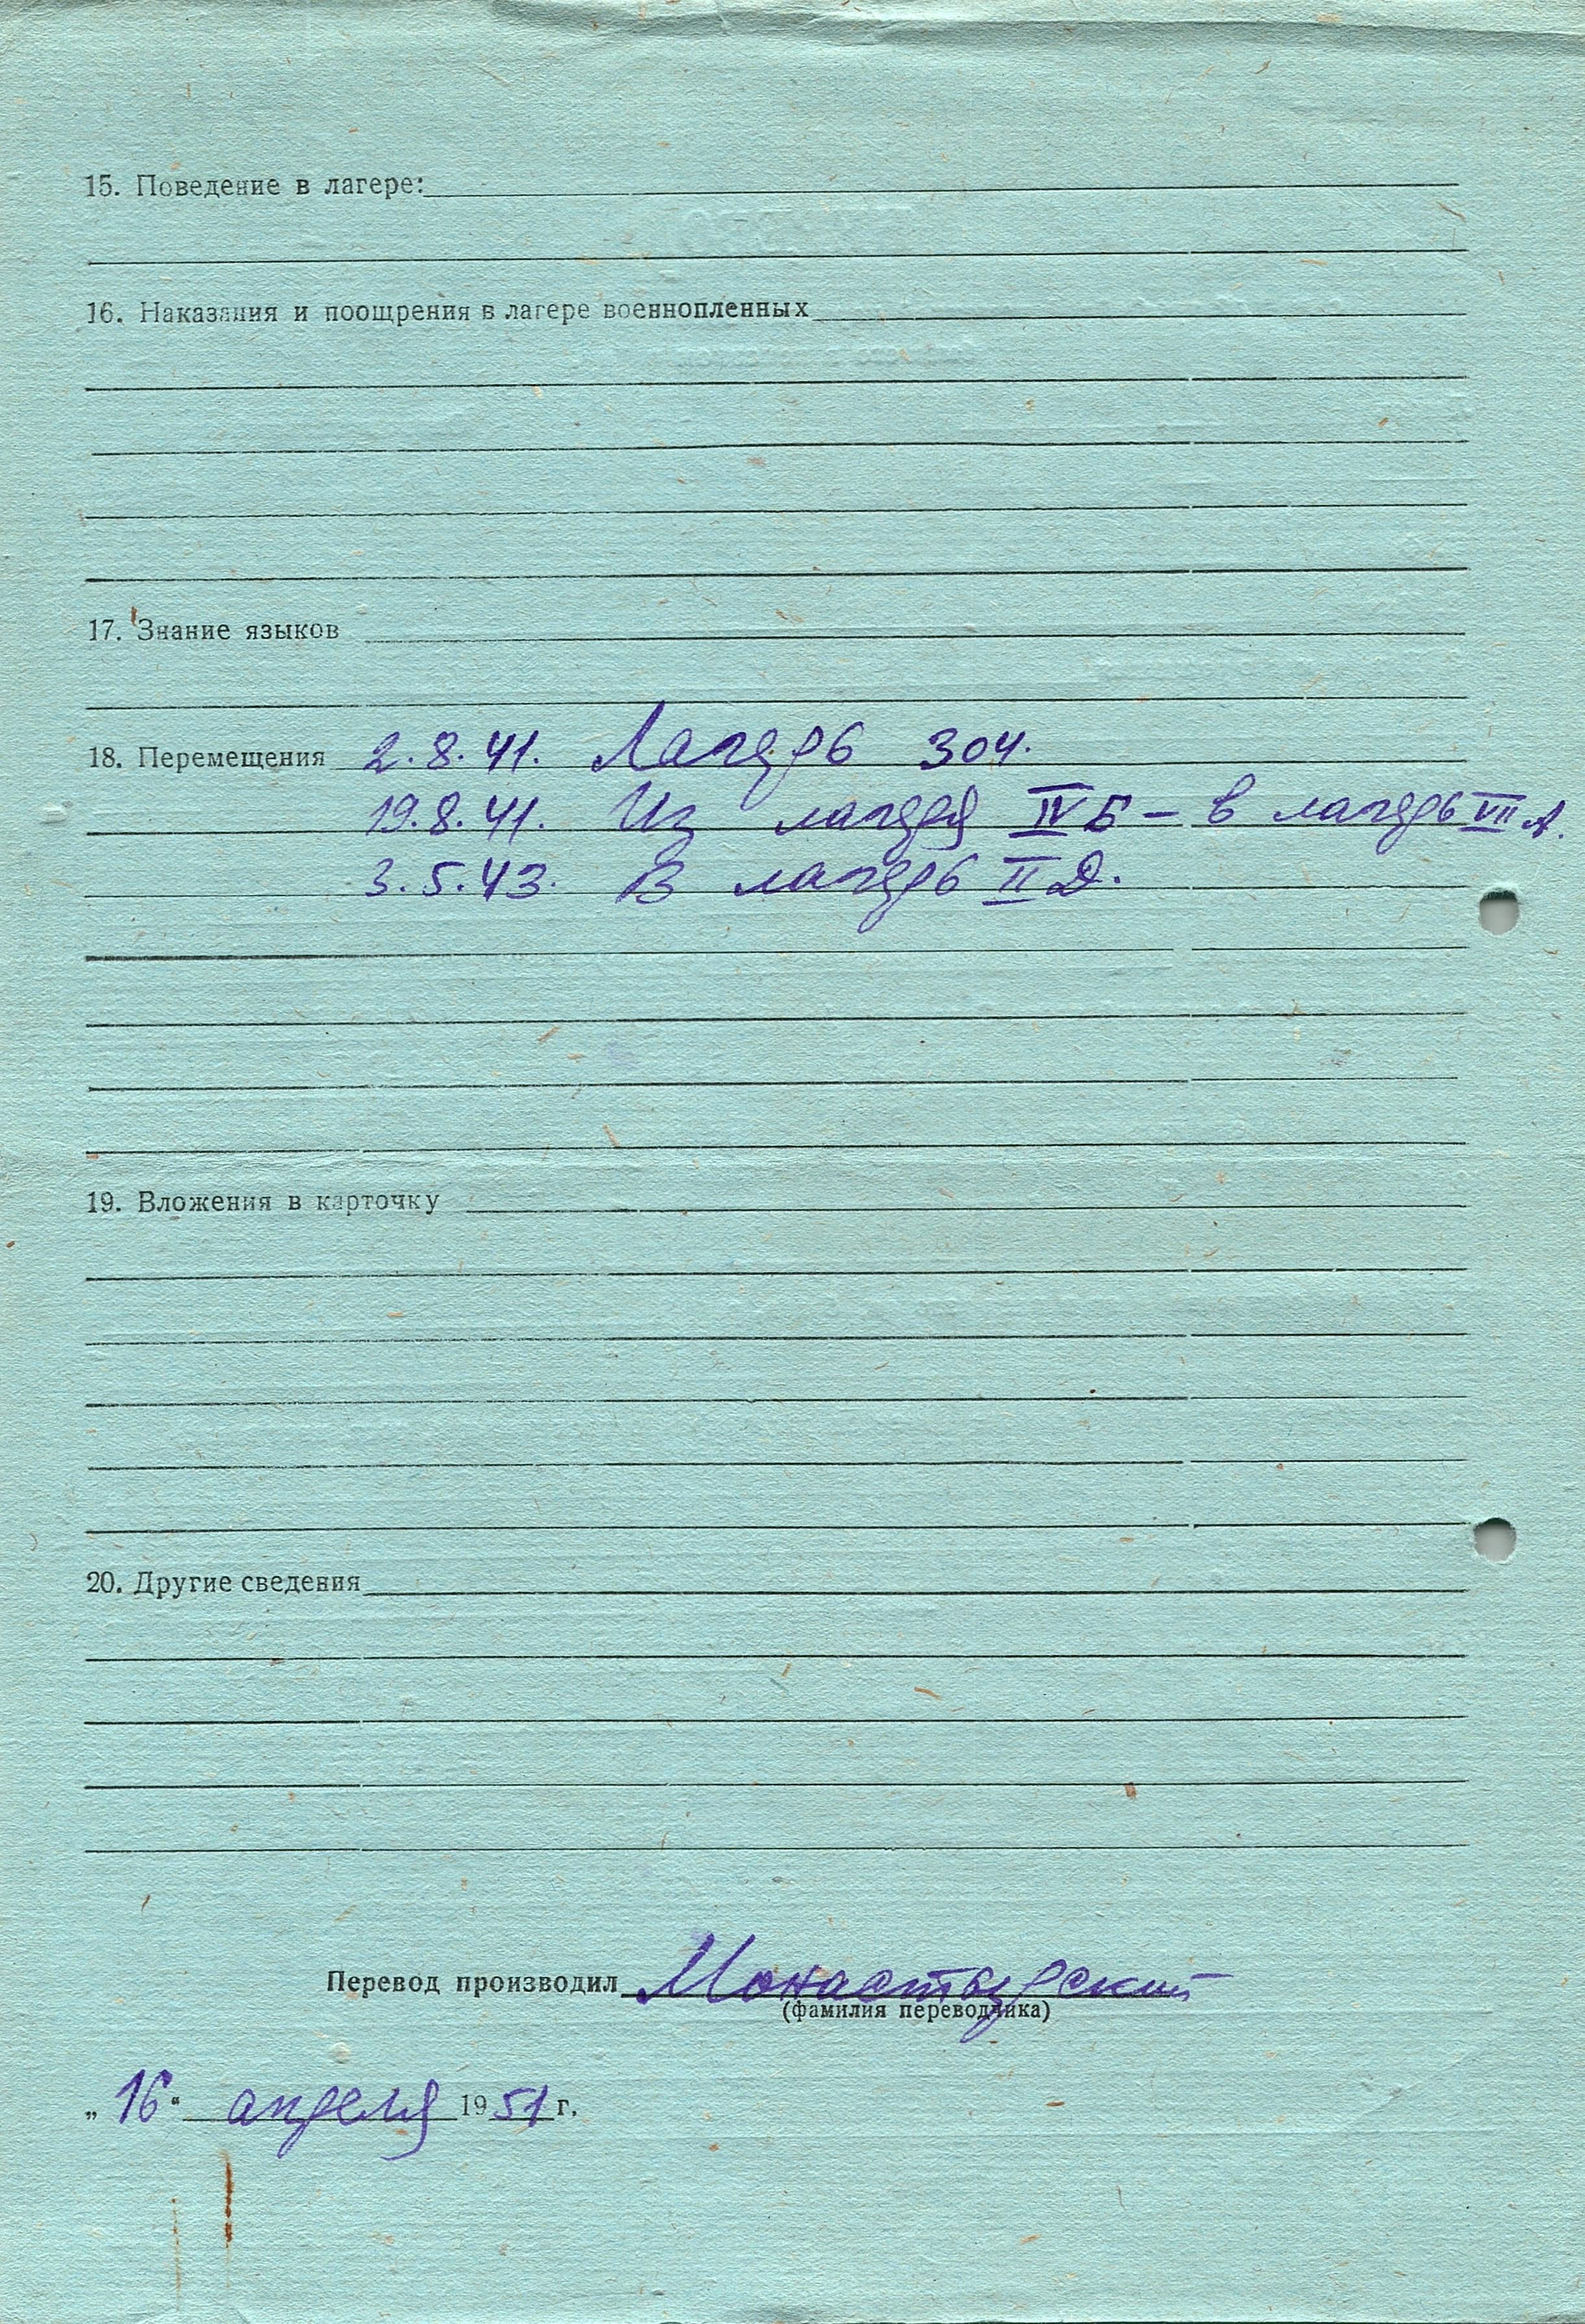 15. Поведение в лагере:
16. Наказания и поощрения в лагере военнопленных
17. Знание языков
18. Перемещения 2.8.41. Лагерь 304.
19.8.41. Из лагеря IV Б – в лагерь VII А.
3.5.43. В лагерь II Д.
19. Вложения в карточку
20. Другие сведения
Перевод производил Монастырский
(фамилия переводчика)
„16“ апреля 1951 г.